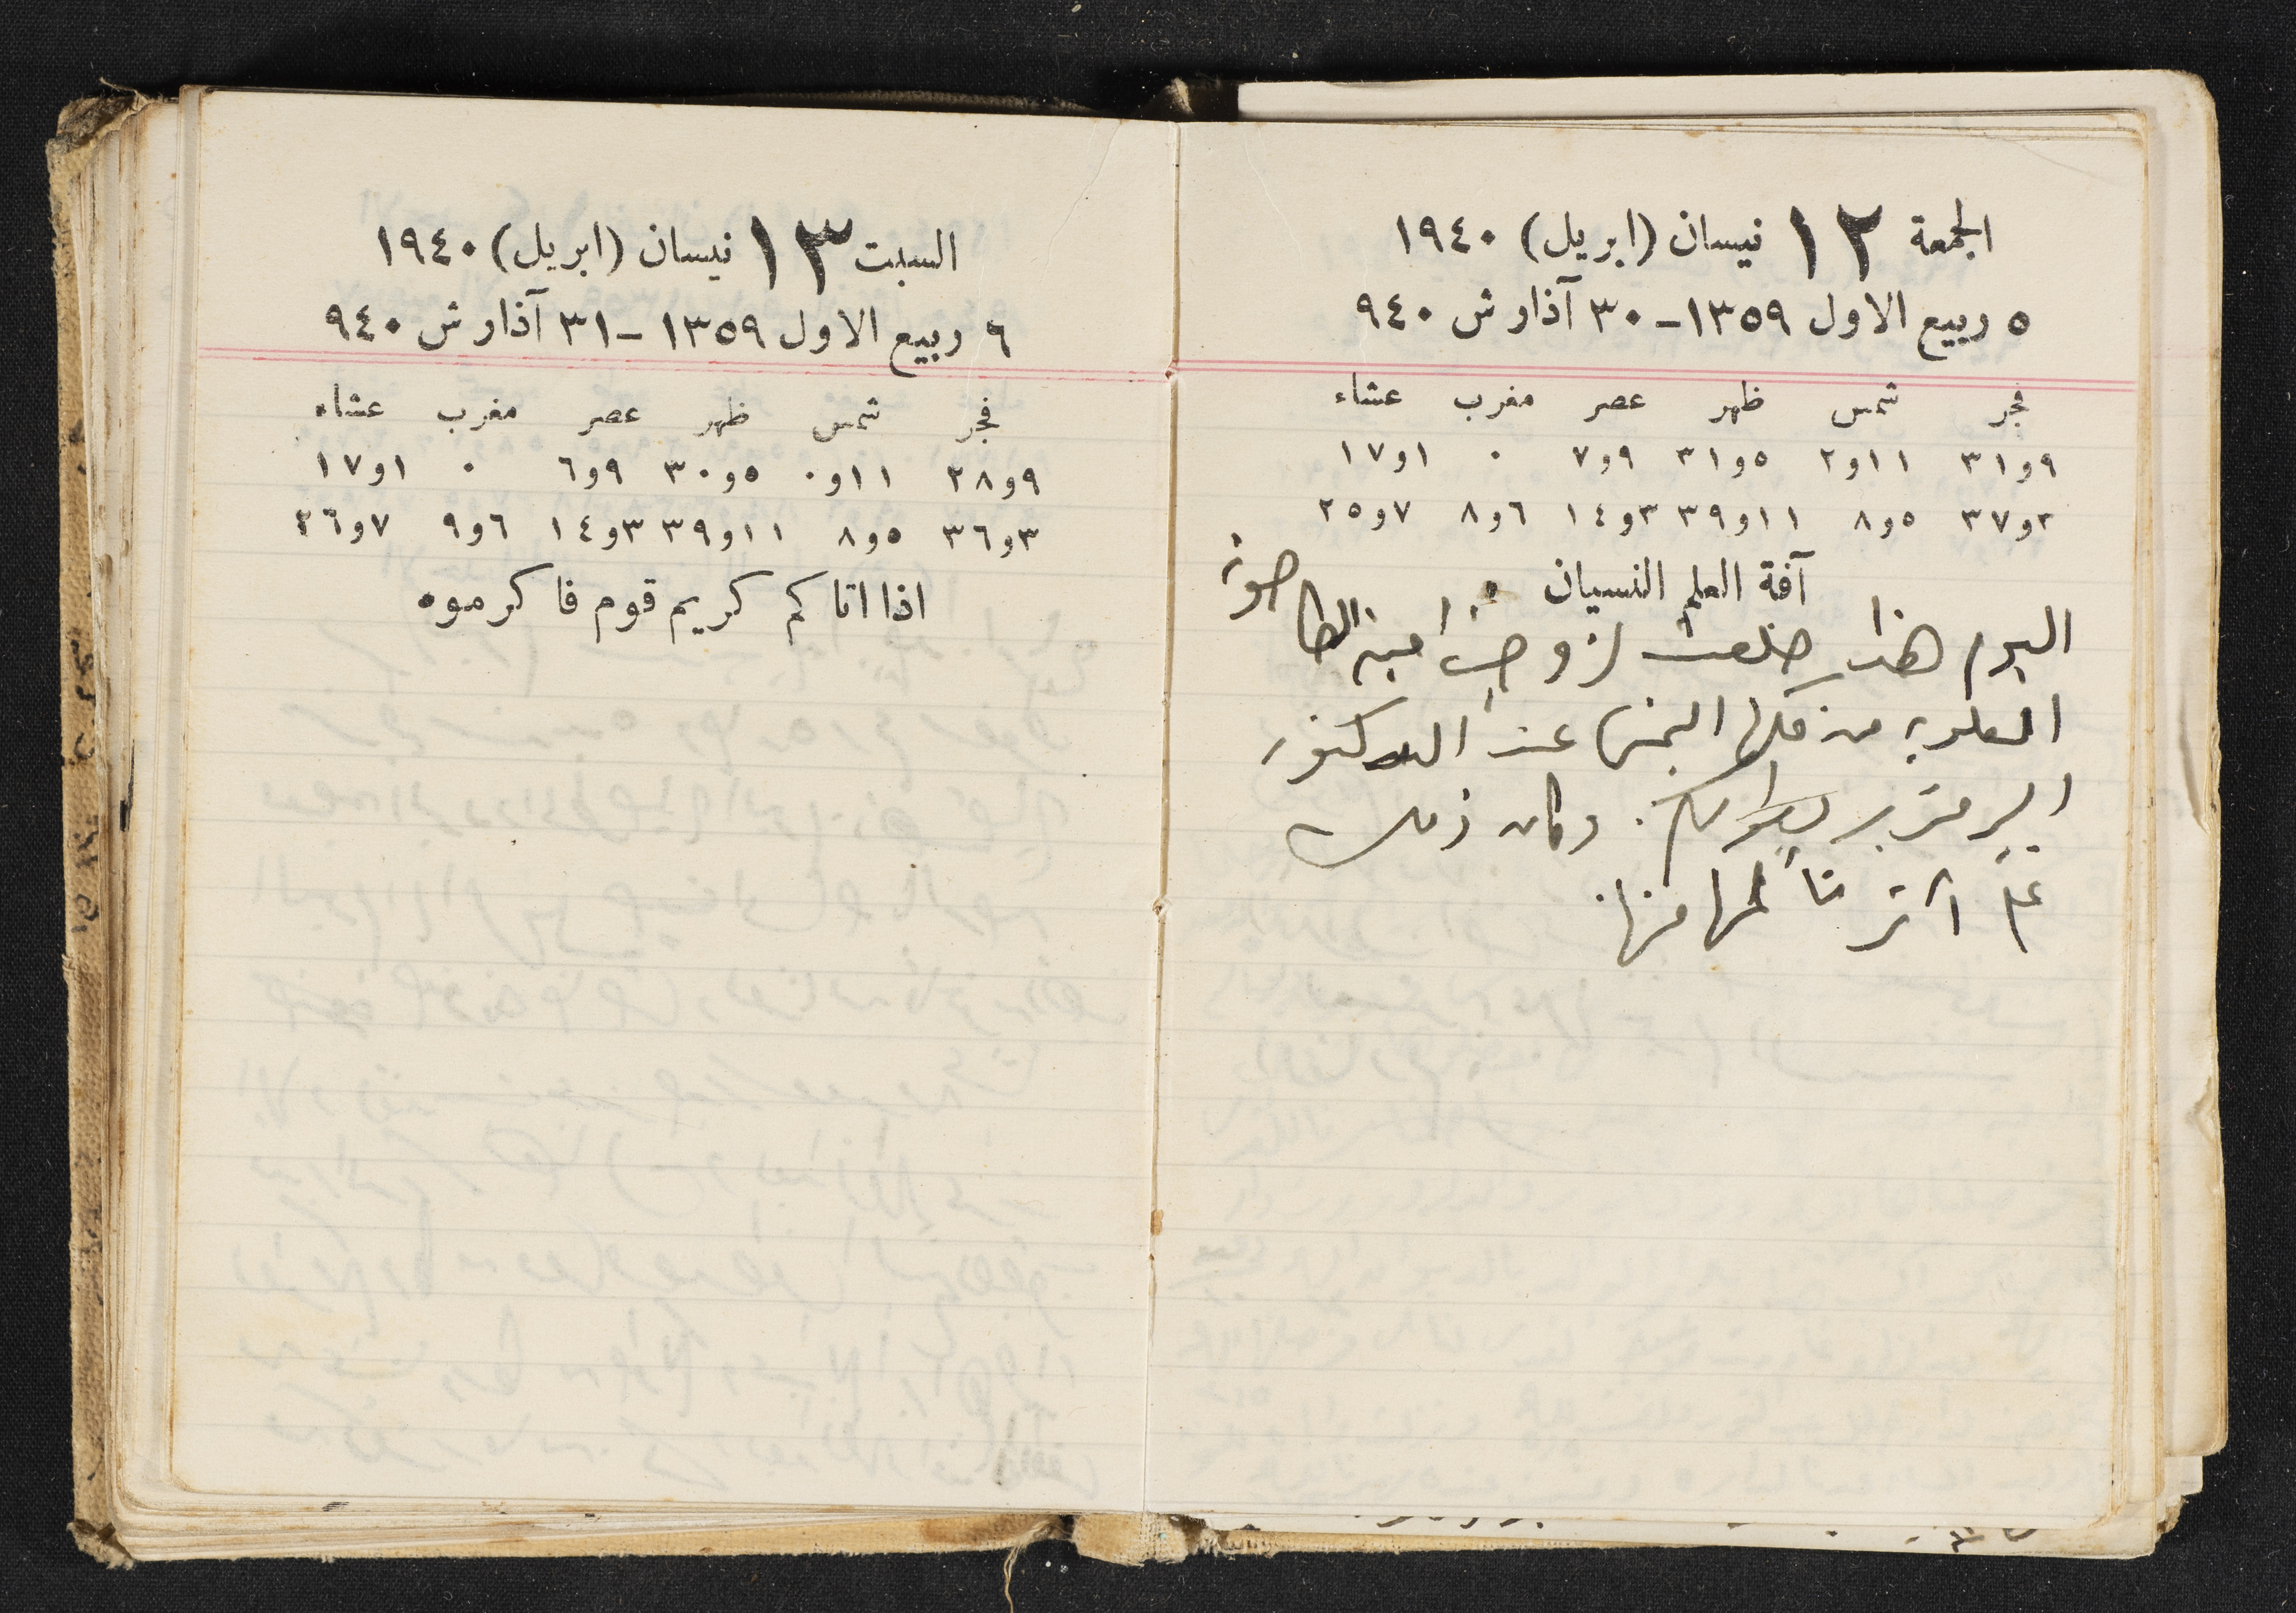 الجمعة ١٢ نيسان (ابريل) ١٩٤٠
٥ ربيع الاول ١٣٥٩ - ٣٠ آذار ش ٩٤٠
فجر شمس ظهر عصر مغرب عشاء
٩و٣١ ١١و٢ ٥و٣١ ٩و٧ ٠ ١و١٧
٣و٣٧ ٥و٨ ١١و٣٩ ٣و١٤ ٦و٨ ٧و٢٥
آفة العلم النسيان
اليوم هذا خلعت زوجتي امينة الطاحونة
العلوية من فكها اليمنى عند الدكتور
وكان ذلك
على اثر تألمها منها.
السبت ١٣ نيسان (ابريل) ١٩٤٠
٦ ربيع الاول ١٣٥٩ - ٣١ آذار ش ٩٤٠
فجر شمس ظهر عصر مغرب عشاء
٩و٢٨ ١١و٠ ٥و٣٠ ٩و٦ ٠ ١و١٧
٣و٣٦ ٥و٨ ١١و٣٩ ٣و١٤ ٦و٩ ٧و٢٦
اذا اتاكم كريم قوم فاكرموه